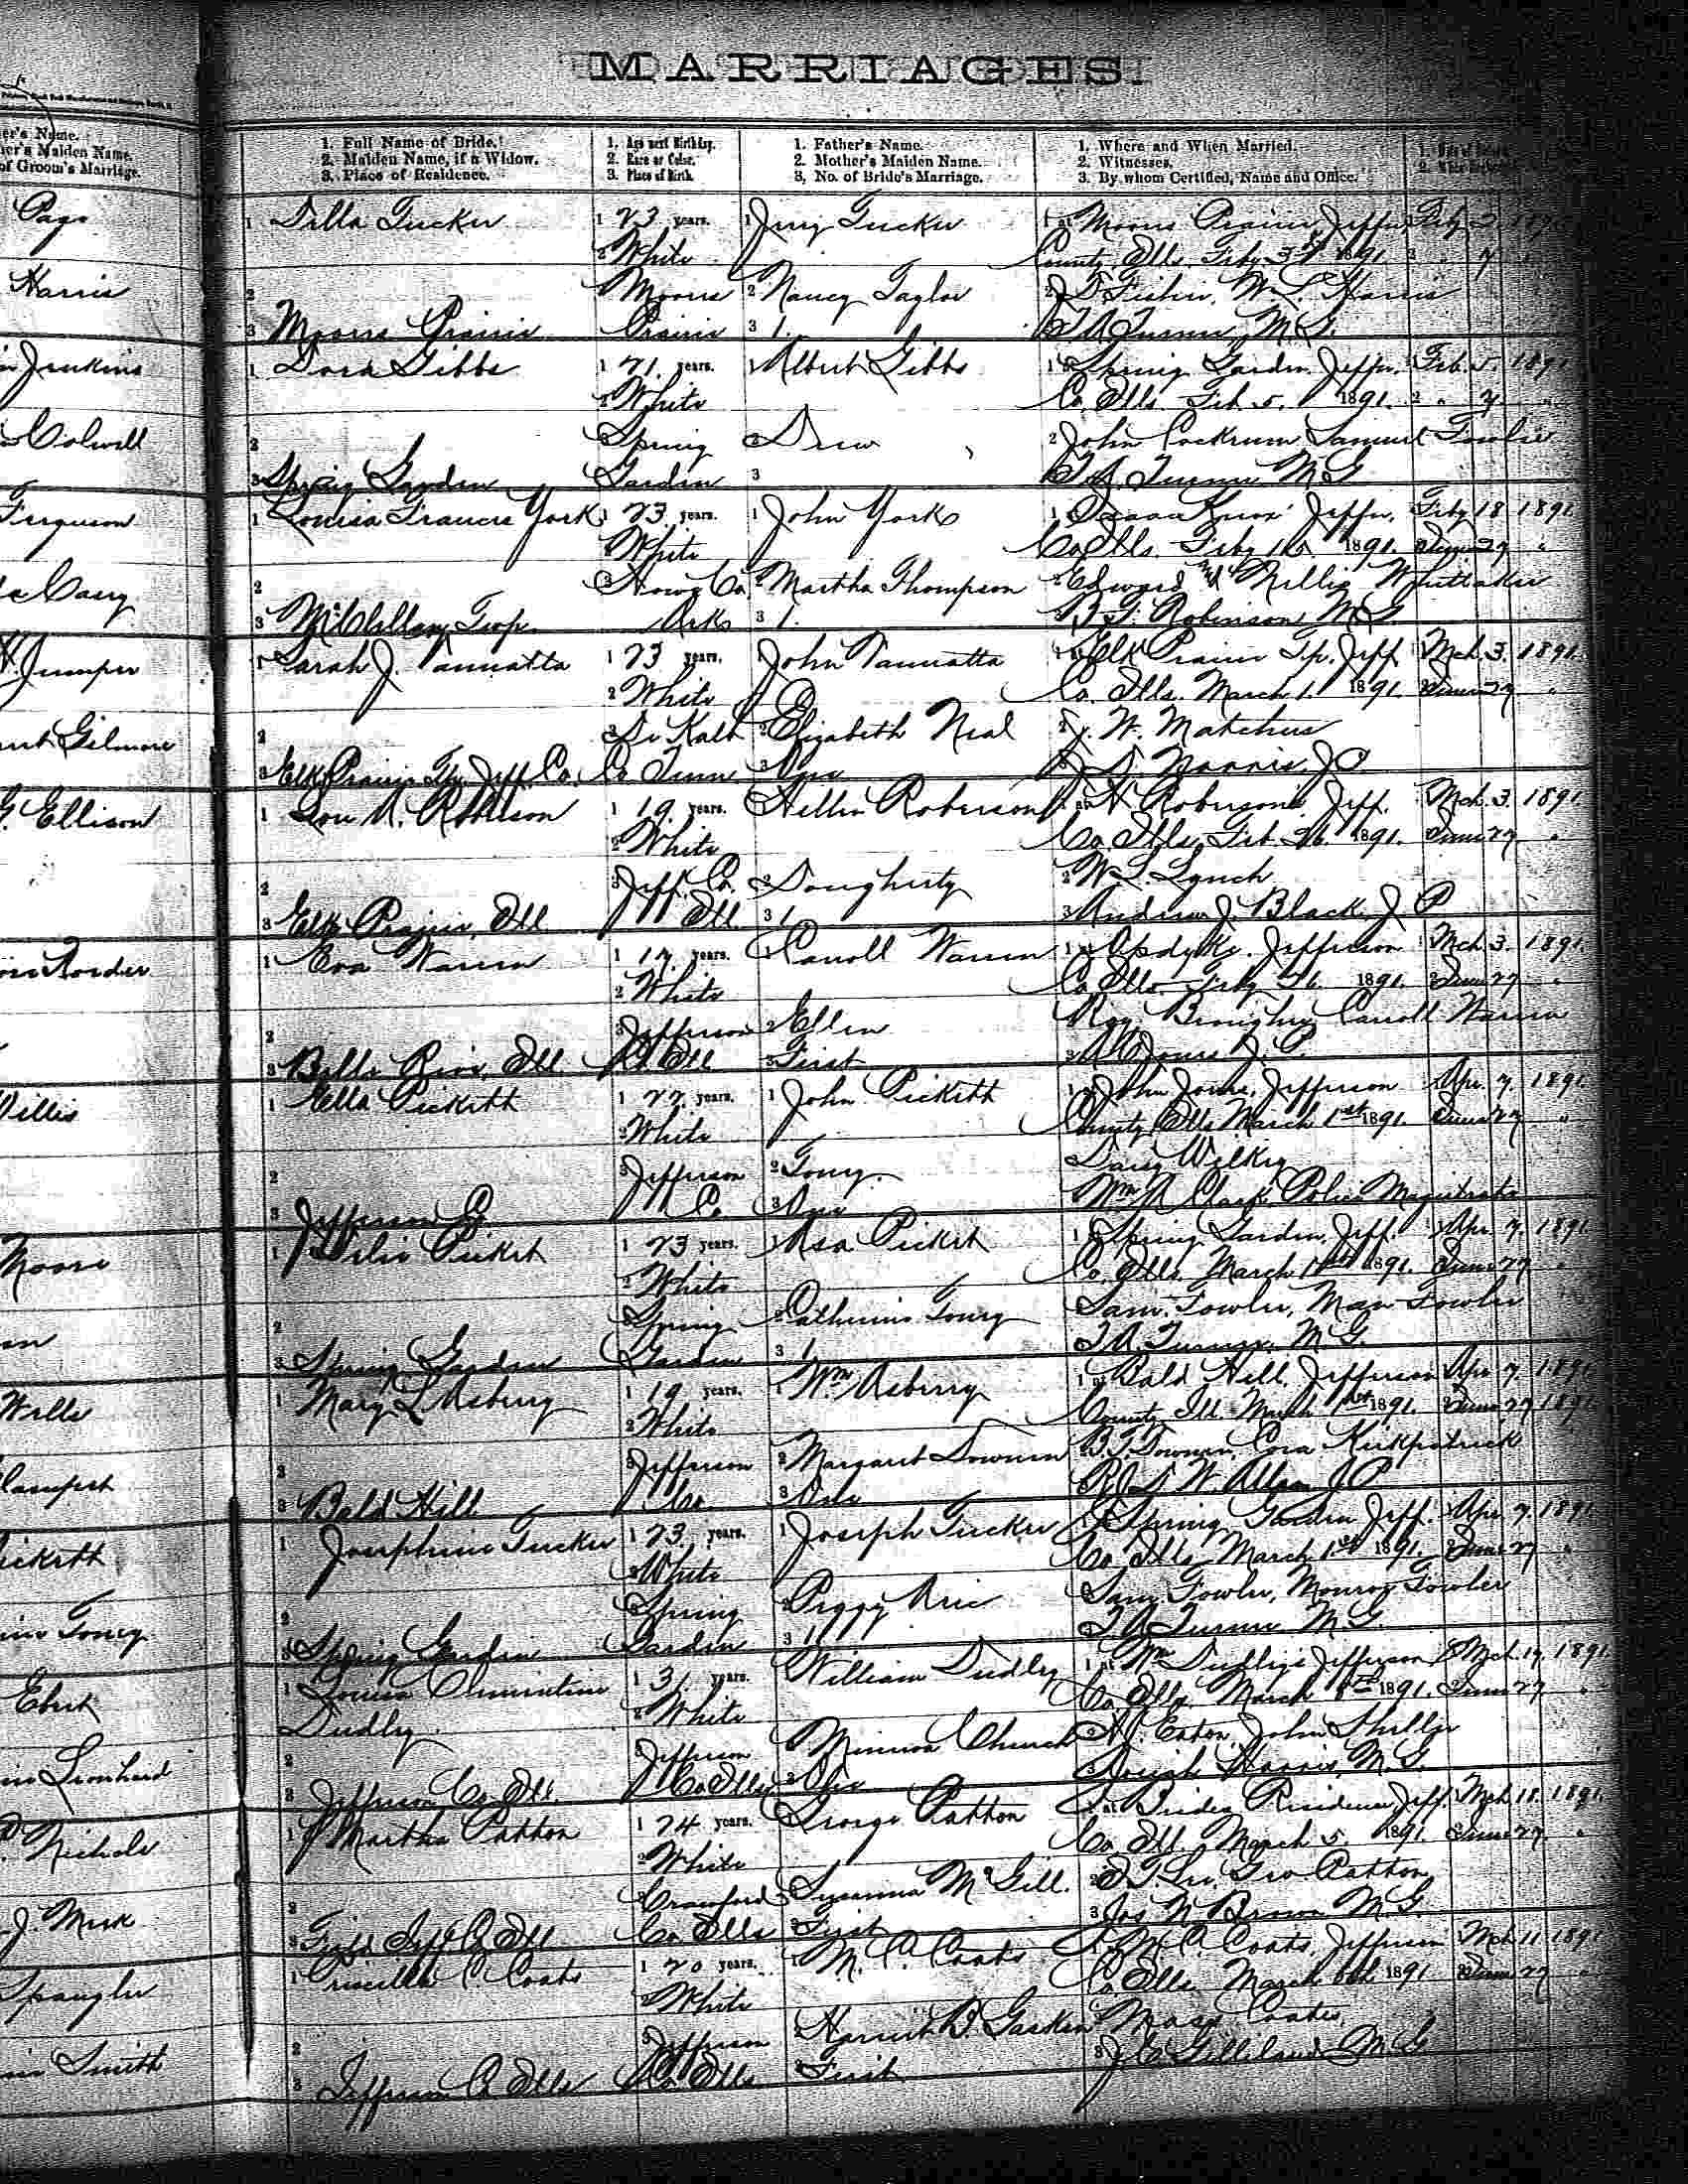 MARRIAGES
er's Name.
er's Maiden Name.
of Groom's Marriage.
1. Full Name of Bride.
2. Maiden Name, if a Widow.
3. Place of Residence.
1. Age next Birthday.
2. Race or Color.
3. Place of Birth.
1. Father's Name.
2. Mother's Maiden Name.
3. No. of Bride's Marriage.
1. Where and When Married.
2. Witnesses.
3. By whom Certified, Name and Office.
Page
Harris
Jenkins
Colwell
Ferguson
Casey
Jumper
Gilmore
Ellison
Willis
Moore
Wells
ickett
Toney
Ebert
Leonhard
Nichols
J. Meek
Spangler
Smith
1 Dilla Tucker 1 23 years. 1 Jerry Tucker 1 at Moores Prairie, Jeffer
2 White County Ills. Feby 3rd 1891.
2 Moores 2 Nancy Taylor 2 J. D. Fisher, W. L. Harris
3 Moores Prairie Prairie 3 1. T. A. Turner, M. G.
1 Dora Gibbs 1 21. years. 1 Albert Gibbs 1 at Spring Garden Jeffer. Feb. 5. 1891
2 White Co. Ills. Feb. 5. 1891. 2 " 7 "
2 Spring 2 Drew 2 John Cockrum Samuel Fowler
3 Spring Garden Garden 3 T. A. Turner M G
1 Louisa Frances York 1 23 years. 1 John York 1 Isaac Knox Jeffer. Feby 18 1891
2 White Co. Ills. Feby 15 1891. June 27 "
2 3 Howe Co 2 Martha Thompson 2 Edward & Nellie Whittaker
3 McClellan Twp. Ark 3 1. B. F. Robinson M G
1 Sarah J. Vannatta 1 23 years. 1 John Vannatta 1 at Elk Prairie Tp. Jeff Mch. 3. 1891.
2 White Co. Ills. March 1. 1891. June 27 "
2 3 De Kalb 2 Elizabeth Neal 2 J. W. Matchus
3 Elk Prairie Tp. Jeff. Co. Co Tenn 3 One Norris, J P
1 Lou M. Robison 1 19. years. Hillen Roberson 1 at H Roberson's Jeff. Mch. 3. 1891
2 White Co. Ills. Feb. 26. 1891. June 27. "
2 3 Jeff. Co. 2 Dougherty 2 W. L. Lynch
3 Elk Prairie, Ill. Ill. 3 1 3 Andrew J. Black, J P
1 Eva Warren 1 17. years. 1 Carroll Warren 1 at Opdyke. Jefferson Mch. 3. 1891.
2 White Co. Ills. Feby 26. 1891. June 27 "
2 3 Jefferson 2 Ellen Carroll Warren
3 Belle Rive, Ill Co Ill 3 First 3 Jones J. P.
1 Ella Pickett 1 22. years. 1 John Pickett 1 at John Jones, Jefferson Apr. 7. 1891.
2 White County, Ills March 1st 1891. June 27 "
2 3 Jefferson 2 Toney. Daisy Wilkey
3 Jefferson Co Co 3 One Wm N Clark Police Magistrate
1 Pickett 1 23 years. 1 Asa Pickett 1 at Spring Garden, Jeff. Apr. 7. 1891
2 White Co. Ills. March 1st 1891. June 27 "
2 Spring 2 Catherine Toney Sam. Fowler, Man Fowler
3 Spring Garden Garden 3 1 T. A. Turner M. G.
1 Mary L Asberry 1 19 years. 1 Wm Asberry 1 at Bald Hill, Jefferson Apr. 7. 1891
2 White County, Ill. March 1st 1891. June 27 1891
2 3 Jefferson 2 Margaret Downen B. F. Downen, Cora Kirkpatrick
3 Bald Hill Co 3 One W. Allen J P
1 Josephine Tucker 1 23 years. 1 Joseph Tucker 1 at Spring Garden Jeff. Apr. 7. 1891
2 White Co. Ills. March 1st 1891. June 27 "
2 Spring 2 Peggy Rice Sam Fowler, Monroe Fowler
3 Spring Garden Garden 3 1 T. A. Turner M. G.
1 Louisa Clementine 1 31. years. William Dudley 1 at Wm Dudley's Jefferson Mch. 19. 1891
Dudley. 2 White Co. Ills. March 8th 1891. June 27 "
2 3 Jefferson Church 2 Eaton, John
3 Jefferson Co. Ill. Co Ills 3 One Josiah Harris, M. G.
1 Martha Patton 1 24 years. George Patton 1 at Brides Residence, Jeff. Mch. 18. 1891.
2 White Co. Ill. March 5. 1891. June 27. "
2 Crawford Susanna McGill. Geo. Patton
3 Field Jeff Co Ill Co Ills First 3 Jos N Brown M G
1 Priscilla C. Coats 1 20 years. 1 M. C. Coats 1 M. C. Coats, Jefferson Mch 11 1891
2 White Co. Ills. March 6th 1891 June 27 "
2 3 Jefferson 2 Harriet B. Gaskin Coates
3 Jefferson Co Ills Co. Ills 3 First 3 Gilliland M G